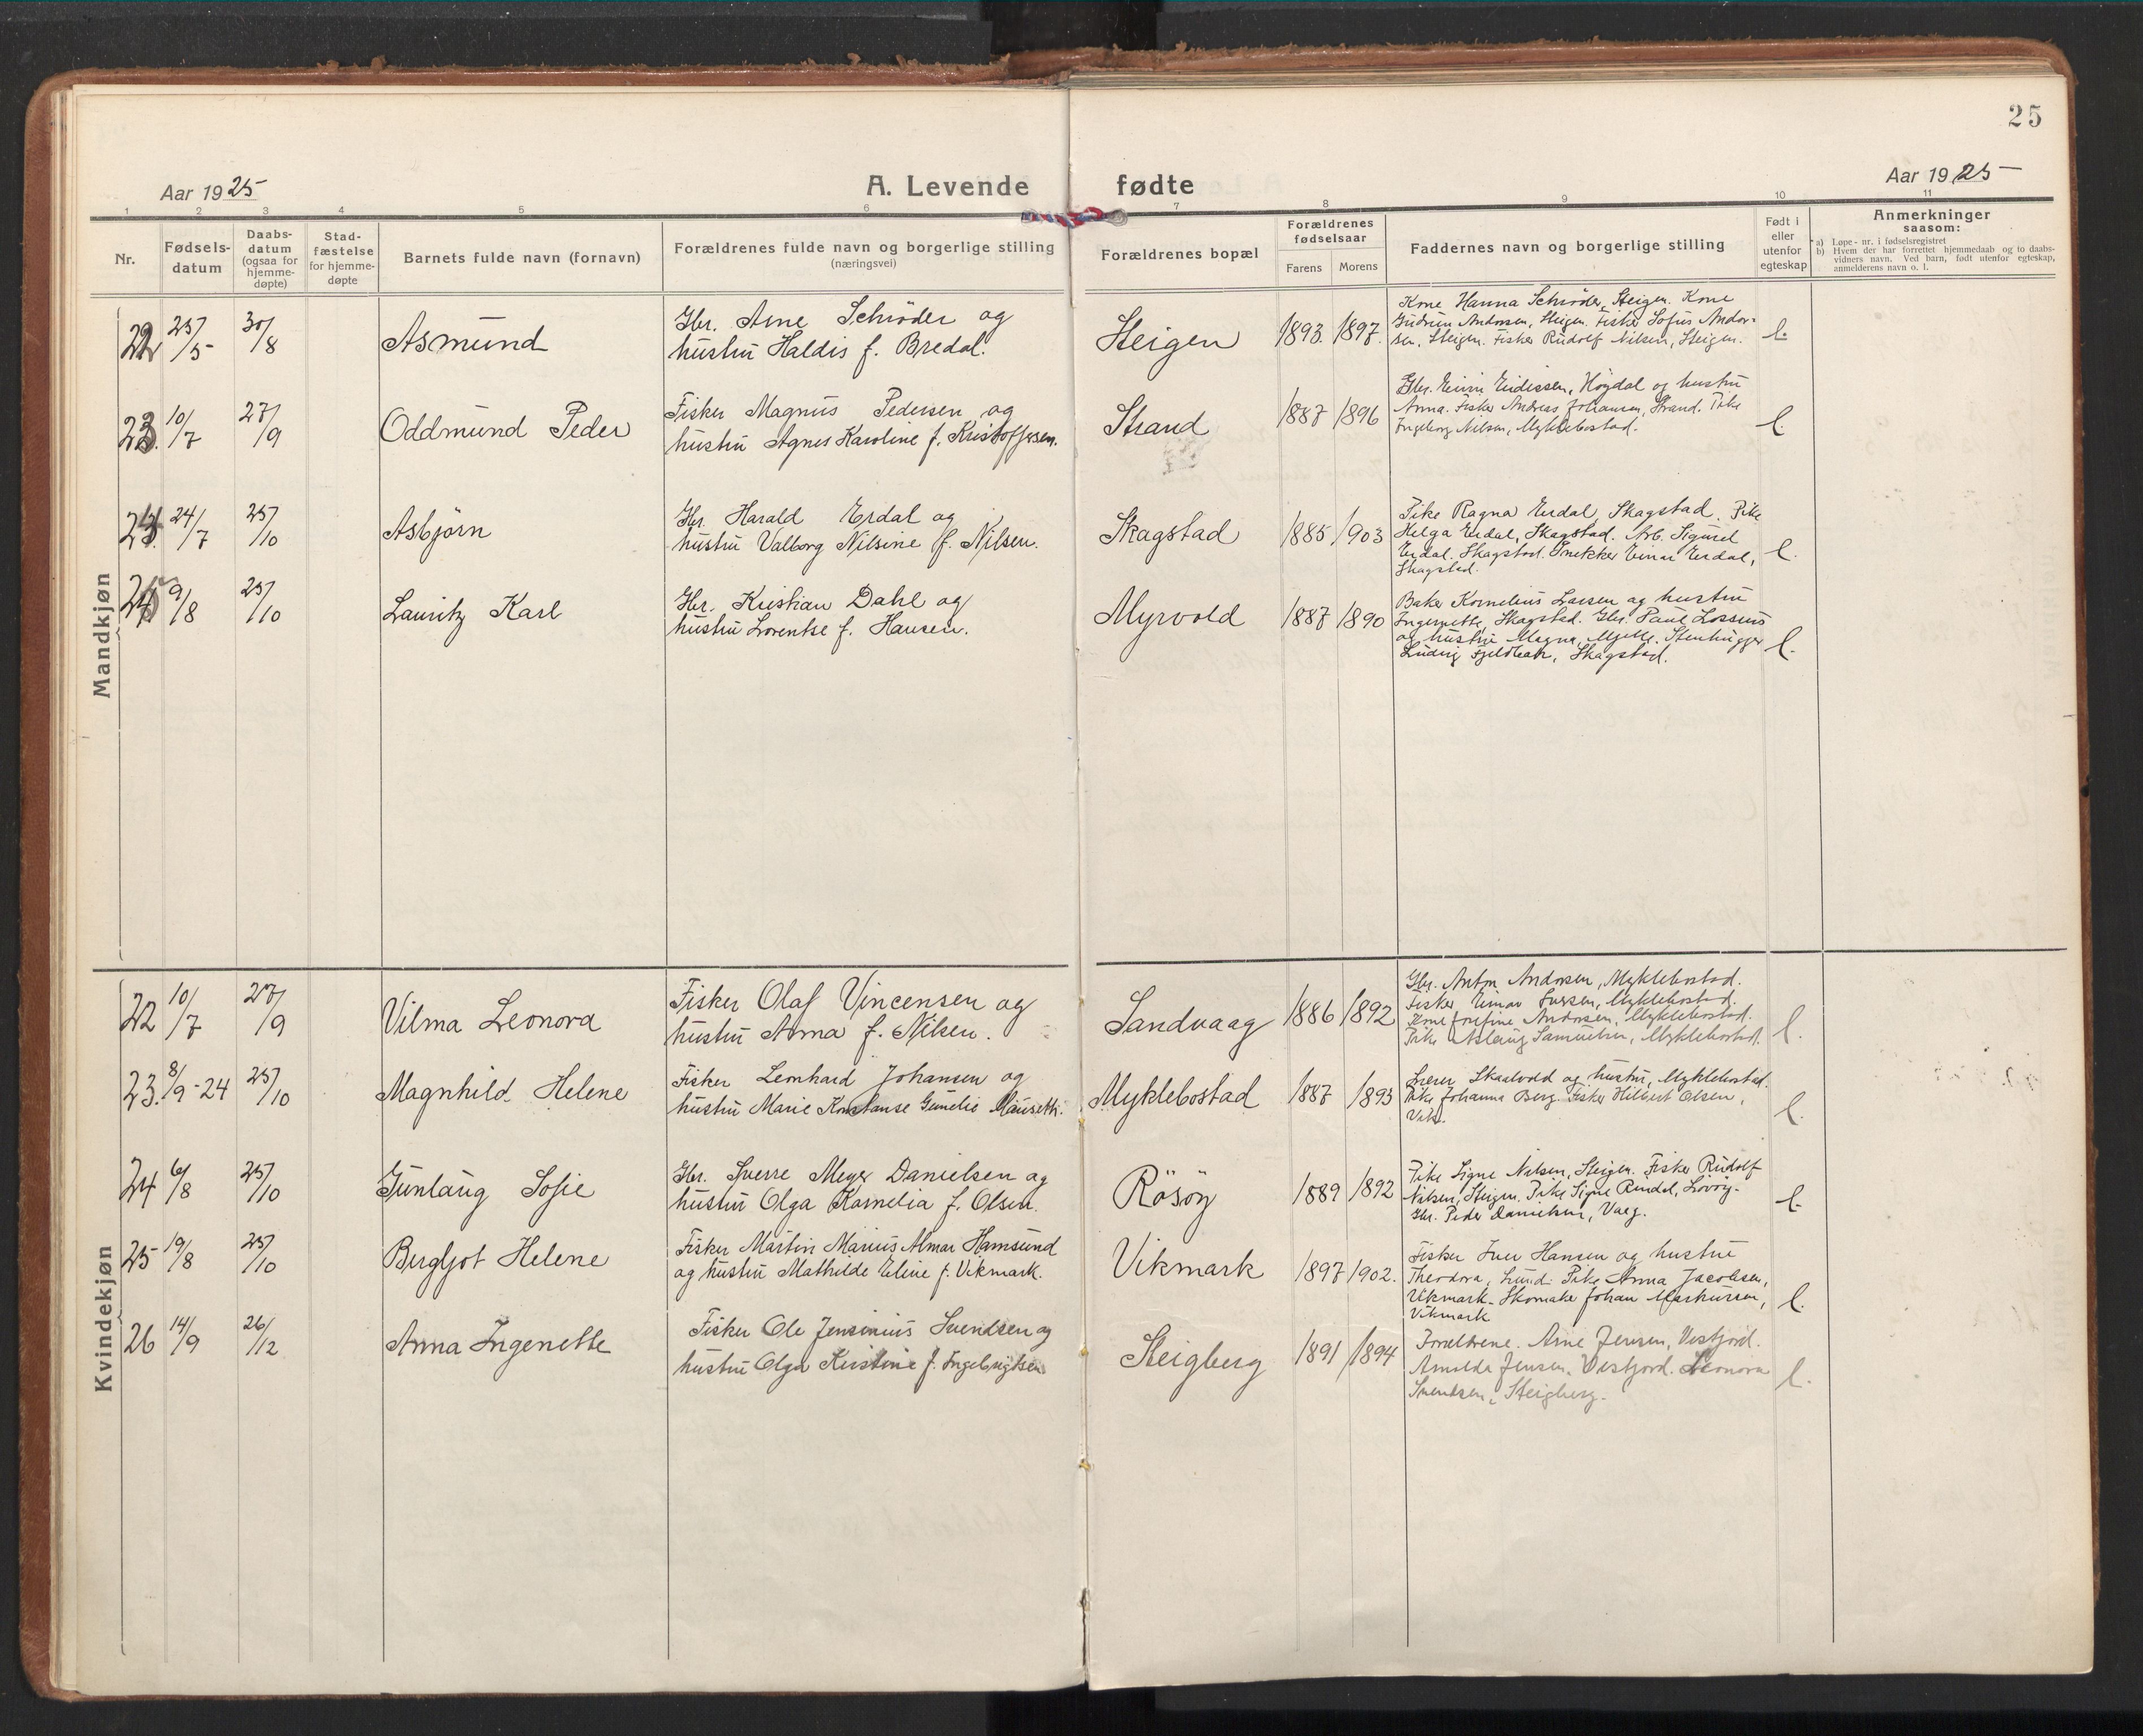 25
Aar 1925
A. Levende fødte
Aar 1925
1 2 3 4 5 6 7 8 9 10 11
Nr.
Fødsels-
datum
Daabs-
datum
(ogsaa for
hjemme-
døpte)
Stad-
fæstelse
for hjemme-
døpte
Barnets fulde navn (fornavn)
Forældrenes fulde navn og borgerlige stilling
(næringsvei)
Forældrenes bopæl
Forældrenes
fødselsaar
Farens Morens
Faddernes navn og borgerlige stilling
Født i
eller
utenfor
egteskap
Anmerkninger
saasom:
a) Løpe-nr. i fødselsregistret
b) Hvem der har forrettet hjemmedaab og to daabs-
vidners navn. Ved barn, født utenfor egteskap,
anmelderens navn o. l.
Mandkjøn
22 25/5 30/8
Asmund
Gbr. Arne Schrøder og
hustru Haldis f. Bredal.
Steigen
1893. 1897.
Kone Hanna Schrøder, Steigen. Kone
Gudrun Andorsen, Steigen. Fisker Sofus Andor-
sen, Steigen. Fisker Rudolf Nilsen, Steigen.
l.
23. 10/7 27/9
Oddmund Peder
Fisker Magnus Pedersen og
hustru Agnes Karoline f. Kristoffersen.
Strand
1887 1896
Gbr. Høgdal og hustru
Anna. Fisker Andreas Johansen, Strand. Pike
Ingeborg Nilsen, Myklebostad.
l.
24. 24/7 25/10
Asbjørn
Gbr. Harald Erdal og
hustru Valborg Nilsine f. Nilsen.
Skagstad
1885 1903
Pike Ragna Erdal Skagstad. Pike
Helga Erdal, Skagstad. Arb. Sigurd
Erdal. Skagstad. Snekker Einar Erdal,
Skagstad.
l.
25 9/8 25/10
Lauritz Karl
Gbr. Kristian Dahl og
hustru Lorentse f. Hansen.
Myrvold
1887 1890
Baker Kornelius Larsen og hustru
Ingernette, Skagstad. Gbr. Paul Lossius
og hustru Magna, Stenhugger
Ludvig Skagstad.
l.
Kvindekjøn
22 10/7 27/9
Vilma Leonora
Fisker Olaf Vincensen og
hustru Anna f. Nilsen.
Sandvaag
1886 1892
Gbr. Anton Andorsen, Myklebostad.
Fisker Einar Iversen, Myklebostad.
Kone Josefine Andorsen, Myklebostad.
Pike Aslaug Samuelsen, Myklebostad.
l.
23. 8/9-24 25/10
Magnhild Helene
Fisker Leonhard Johansen og
hustru Marie Konstanse Gunelie Mausetti.
Myklebostad
1887 1893
Lærer Skaalvold og hustru, Myklebostad.
Pike Johanna Berg. Fisker Hilbert Olsen,
Vik.
l.
24 6/8 25/10
Gunlaug Sofie
Gbr. Sverre Meyer Danielsen og
hustru Olga Kornelia f. Olsen.
Røsøy
1889 1892
Pike Signe Nilsen, Steigen. Fisker Rudolf
Nilsen, Steigen. Pike Signe Rindal, Lovøy.
Gbr. Peder Danielsen, Vaag.
l.
25 19/8 25/10
Bergljot Helene
Fisker Martin Marius Almar Hamsund
og hustru Mathilde Eline f. Vikmark.
Vikmark
1897 1902.
Fisker Iver Hansen og hustru
Theodora, Lund. Pike Anna Jacobsen,
Vikmark. Skomaker Johan Markussen,
Vikmark
l.
26 14/9 26/12
Anna Ingenette
Fisker Ole Jensenius Svendsen og
hustru Olga Kirstine f. Ingebrigtsen
Steigberg
1891 1894
Forældrene. Arne Jensen, Vestfjord.
Arnolda Jensen, Vestfjord. Leonora
Svendsen, Steigberg.
l.